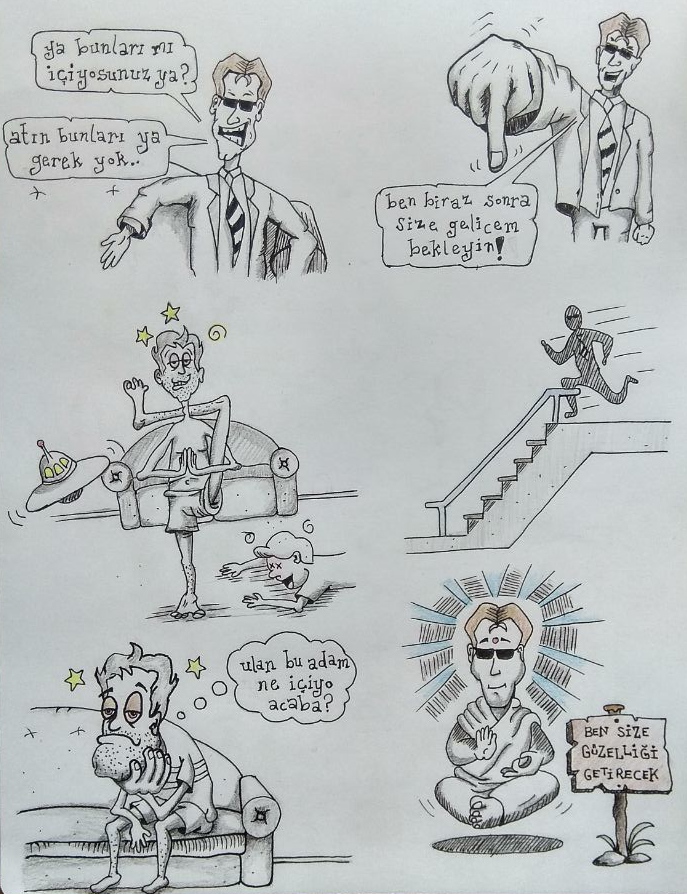 ya bunları mı
içiyosunuz ya?
atın bunları ya
gerek yok..
ben biraz sonra
size gelicem
bekleyin!
ulan bu adam
ne içiyo
acaba?
BEN SİZE
GÜZELLİĞİ
GETİRECEK